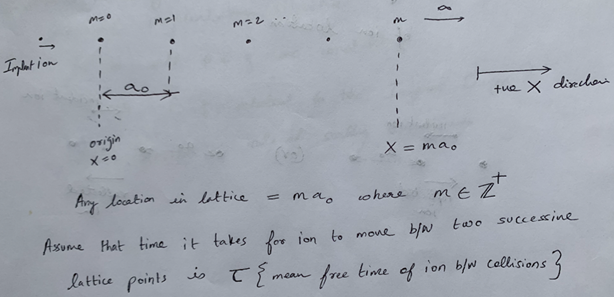 m=0 m=1 m=2 .. m a
Implation
a₀
+ve X direction
origin
X=0
X = ma₀
Any location in lattice = ma₀ where m ∈ ℤ⁺
Assume that time it takes for ion to move b/w two successive
lattice points is τ {mean free time of ion b/w collisions}